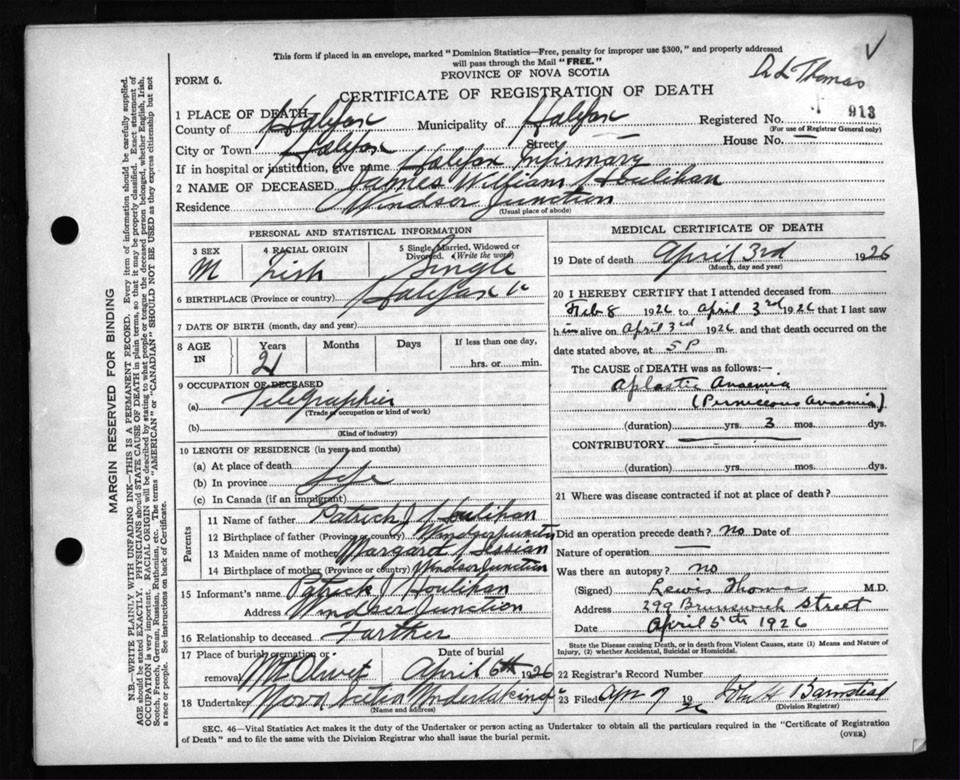 This form if placed in an envelope, marked "Dominion Statistics—Free, penalty for improper use $300," and properly addressed
will pass through the Mail "FREE."
PROVINCE OF NOVA SCOTIA
Thomas
FORM 6.
CERTIFICATE OF REGISTRATION OF DEATH
1 PLACE OF DEATH
County of Halifax Municipality of Halifax Registered No. 913
(For use of Registrar General only)
City or Town Halifax Street — House No. —
If in hospital or institution, give name Halifax Infirmary
2 NAME OF DECEASED James William Houlihan
Residence Windsor Junction
(Usual place of abode)
PERSONAL AND STATISTICAL INFORMATION
3 SEX M
4 RACIAL ORIGIN Irish
5 Single, Married, Widowed or Divorced. (Write the word) Single
6 BIRTHPLACE (Province or country) Halifax
7 DATE OF BIRTH (month, day and year)
8 AGE IN Years 21 Months Days If less than one day, hrs. or min.
9 OCCUPATION OF DECEASED
(a) Telegraphier
(Trade or occupation or kind of work)
(b)
(Kind of industry)
10 LENGTH OF RESIDENCE (in years and months)
(a) At place of death
(b) In province Life
(c) In Canada (if an immigrant)
Parents
11 Name of father Patrick J Houlihan
12 Birthplace of father (Province or country) Windsor Junction
13 Maiden name of mother
14 Birthplace of mother (Province or country) Windsor Junction
15 Informant's name Patrick J Houlihan
Address Windsor Junction
16 Relationship to deceased Farther
17 Place of burial, cremation or removal Mt Olivet Date of burial April 6th, 1926
18 Undertaker Nova Scotia Undertaking Co
(Name and address)
MEDICAL CERTIFICATE OF DEATH
19 Date of death April 3rd 1926
(Month, day and year)
20 I HEREBY CERTIFY that I attended deceased from
Feb 8 1926 to April 3rd 1926 that I last saw
him alive on April 3rd 1926 and that death occurred on
date stated above, at 5 P m.
The CAUSE OF DEATH was as follows:—
Aplastic Anaemia
(Perniceous Anaemia)
(duration) yrs. 3 mos. dys.
CONTRIBUTORY —
(duration) yrs. mos. dys.
21 Where was disease contracted if not at place of death?
Did an operation precede death? no Date of
Nature of operation —
Was there an autopsy? no
(Signed) Lewis Thomas M.D.
Address 299 Brunswick Street
Date April 5th 1926
State the Disease causing Death, or in death from Violent Causes, state (1) Means and Nature of
Injury, (2) whether Accidental, Suicidal or Homicidal.
22 Registrar's Record Number
23 Filed Apr 7 1926 John H Barnstead
(Division Registrar)
SEC. 46—Vital Statistics Act makes it the duty of the Undertaker or person acting as Undertaker to obtain all the particulars required in the "Certificate of Registration
of Death" and to file the same with the Division Registrar who shall issue the burial permit.
(OVER)
MARGIN RESERVED FOR BINDING
N.B.—WRITE PLAINLY WITH UNFADING INK—THIS IS A PERMANENT RECORD. Every item of information should be carefully supplied.
AGE should be stated EXACTLY. PHYSICIANS should STATE CAUSE OF DEATH in plain terms, so that it may be properly classified. Exact statement of
OCCUPATION is very important. RACIAL ORIGIN will be described by stating to what people or tongue the deceased person belonged, whether English, Irish,
Scotch, French, German, Russian, Ruthenian, etc. The terms "AMERICAN" or "CANADIAN" SHOULD NOT BE USED as they express citizenship but not
a race or people. See instructions on back of Certificate.